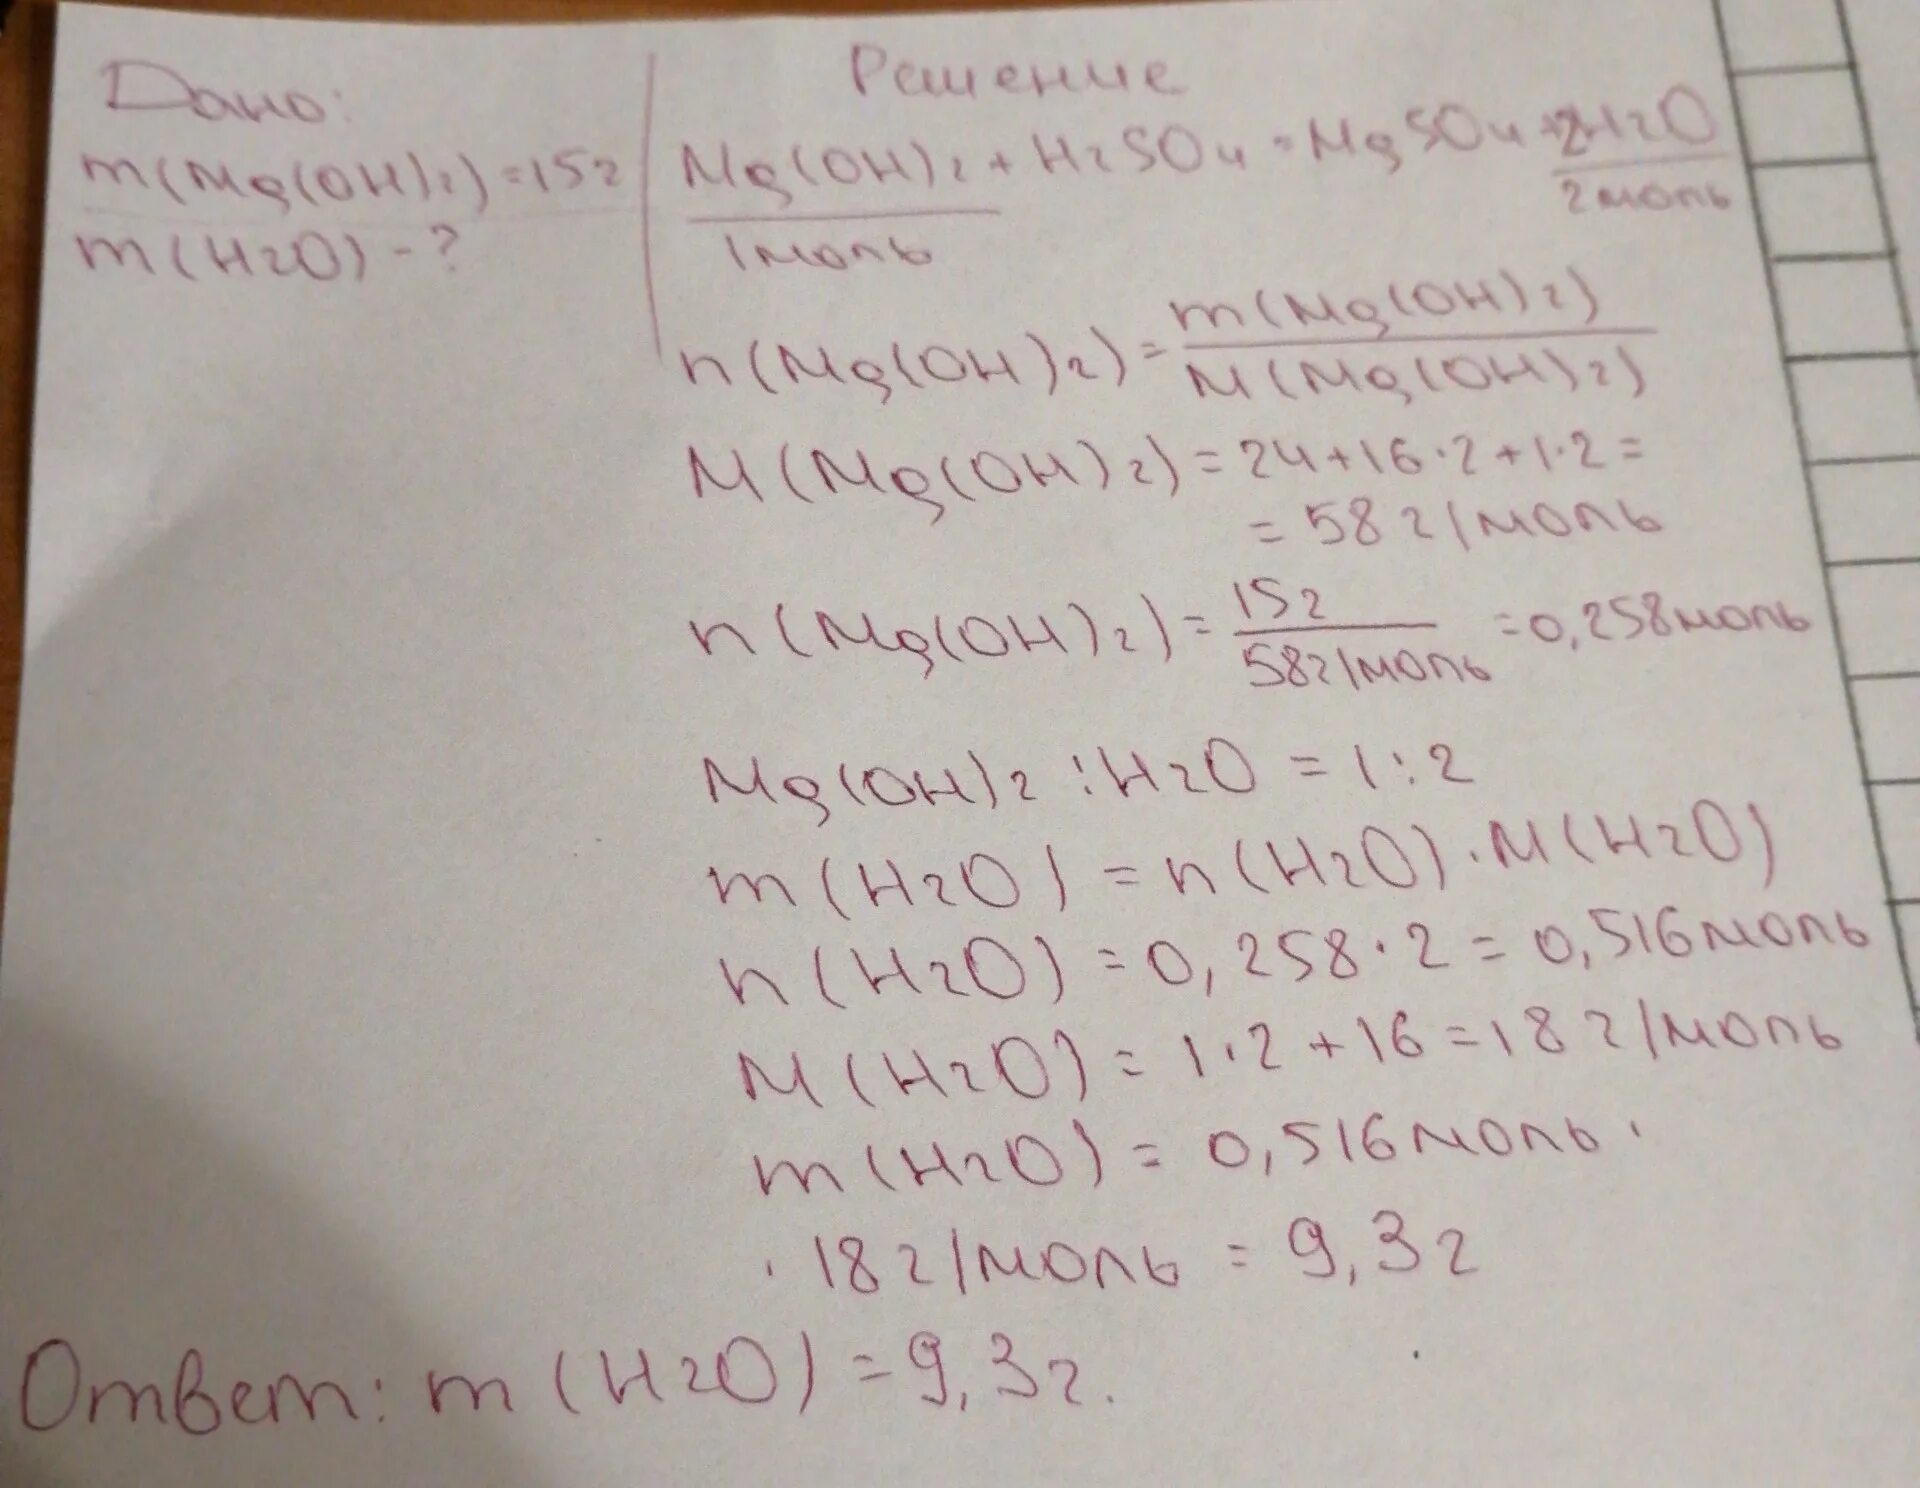 Дано:
m(Mg(OH)2)=15г
m(H2O)-?
Решение
Mg(OH)2+H2SO4=MgSO4+2H2O
1моль
2моль
n(Mg(OH)2)=
m(Mg(OH)2)
M(Mg(OH)2)
M(Mg(OH)2)=24+16·2+1·2=
=58г/моль
n(Mg(OH)2)=
15г
58г/моль
=0,258моль
Mg(OH)2:H2O=1:2
m(H2O)=n(H2O)·M(H2O)
n(H2O)=0,258·2=0,516моль
M(H2O)=1·2+16=18г/моль
m(H2O)=0,516моль·
·18г/моль=9,3г
Ответ: m(H2O)=9,3г.